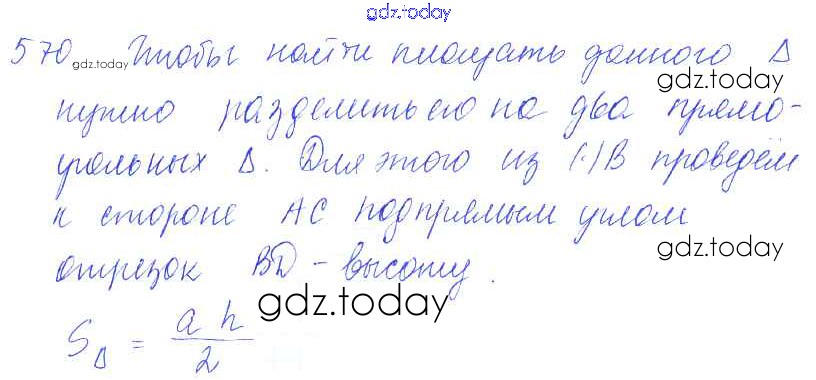 gdz.today
570 gdz.today Чтобы найти площадь данного Δ
gdz.today
нужно разделить его на два прямо-
угольных Δ. Для этого из (·)B проведём
gdz.today
к стороне AC под прямым углом
gdz.today
отрезок BD - высоту.
gdz.today
S_Δ = a h / 2